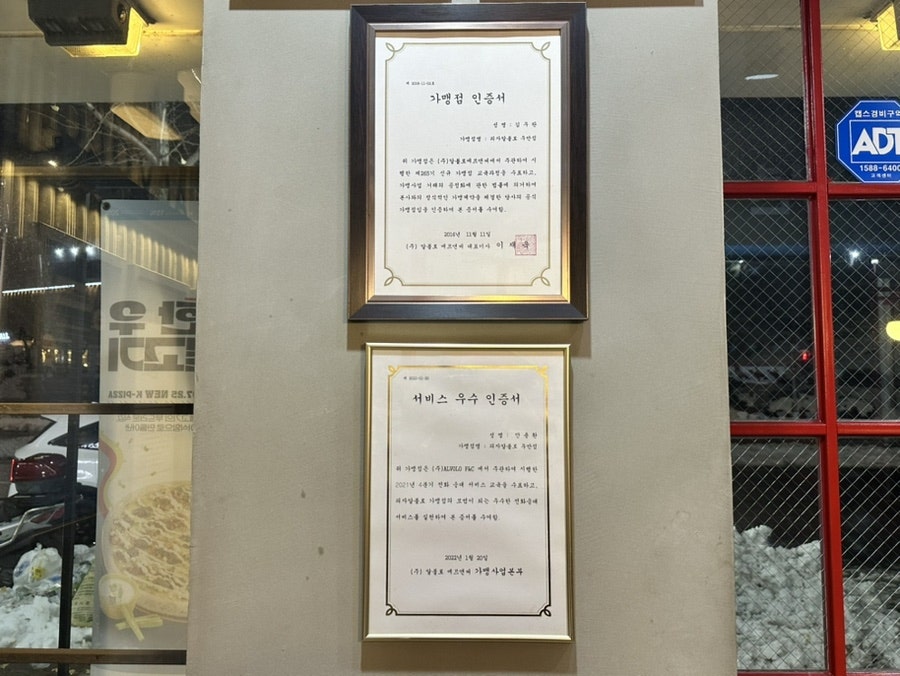 가맹점 인증서
가맹점명 : 피자알볼로 우만점
위 가맹점은 (주)알볼로에프앤씨에서 주관하여 시
행한 제265기 신규 가맹점 교육과정을 수료하고,
가맹사업 거래의 공정화에 관한 법률에 의거하여
본사와의 정식적인 가맹계약을 체결한 당사의 공식
가맹점임을 인증하며 본 증서를 수여함.
2016년 11월 11일
(주) 알볼로 에프앤씨 대표이사 이재욱
서비스 우수 인증서
가맹점명 : 피자알볼로 우만점
위 가맹점은 (주)ALVOLO F&C 에서 주관하여 시행한
2021년 4분기 전화 응대 서비스 교육을 수료하고,
피자알볼로 가맹점의 모범이 되는 우수한 전화응대
서비스를 실천하여 본 증서를 수여함.
2022년 1월 20일
(주) 알볼로 에프앤씨 가맹사업본부
캡스경비구역
ADT
1588-6400
고객센터
한우
7.25 NEW K-PIZZA